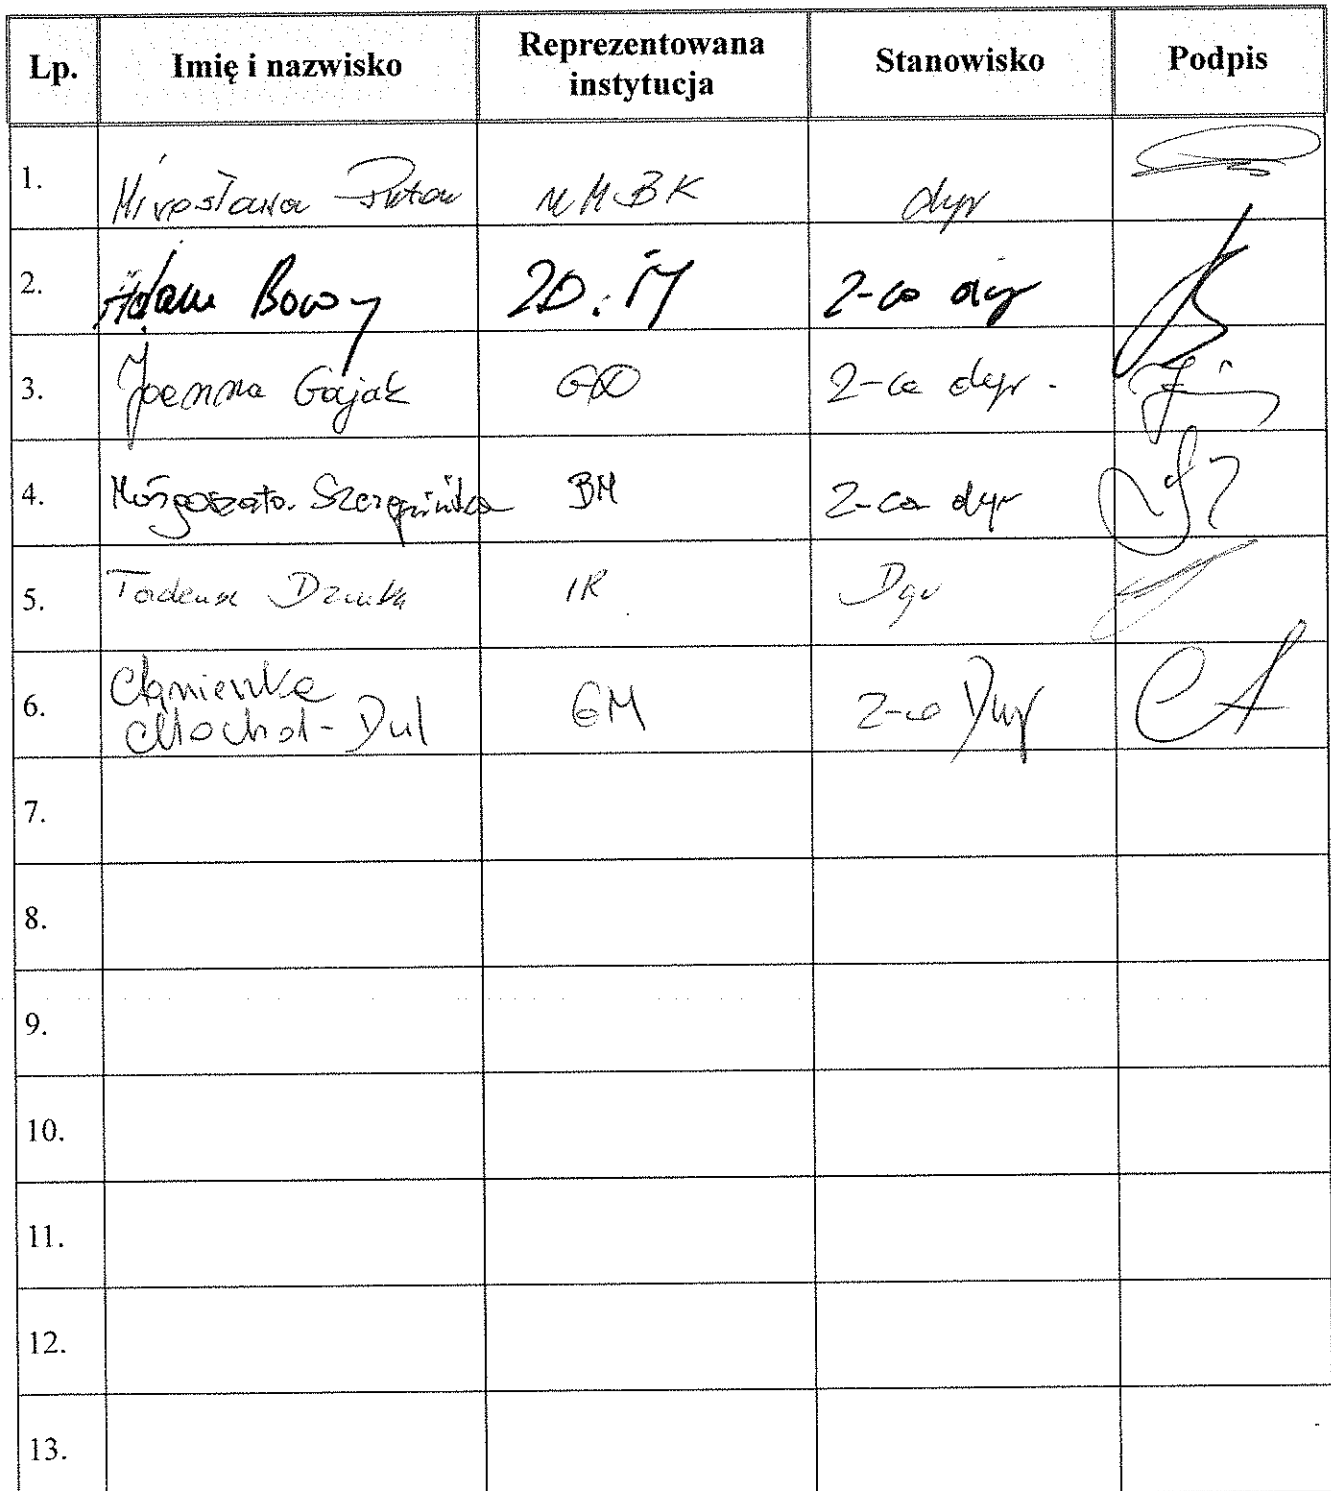 Lp. Imię i nazwisko Reprezentowana instytucja Stanowisko Podpis
1. Mirosława dyr
2. Adam Z-ca dyr
3. Joanna Gajak GD Z-ca dyr.
4. Małgorzata Szczepińska BM Z-ca dyr
5. Tadeusz IR Dyr
6. Agnieszka GM Z-ca Dyr
Mochol-Dul
7.
8.
9.
10.
11.
12.
13.